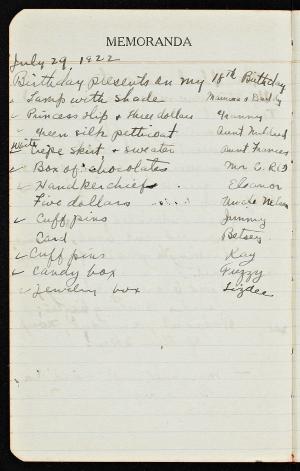 MEMORANDA
July 29, 1922
Birthday presents on my 18th Birthday
✓ Lamp with shade Mamma & Daddy
✓ Princess slip & three dollars Granny
✓ Green silk petticoat Aunt Mildred
✓ White Crepe skirt & sweater Aunt Frances
✓ Box of chocolates Mr C.
✓ Handkerchiefs Eleanor
Five dollars ..... Uncle Nelson
✓ Cuff pins Jimmy
Card Betsey
✓ Cuff pins Kay
✓ Candy box Fuzzy
✓ Jewelry box